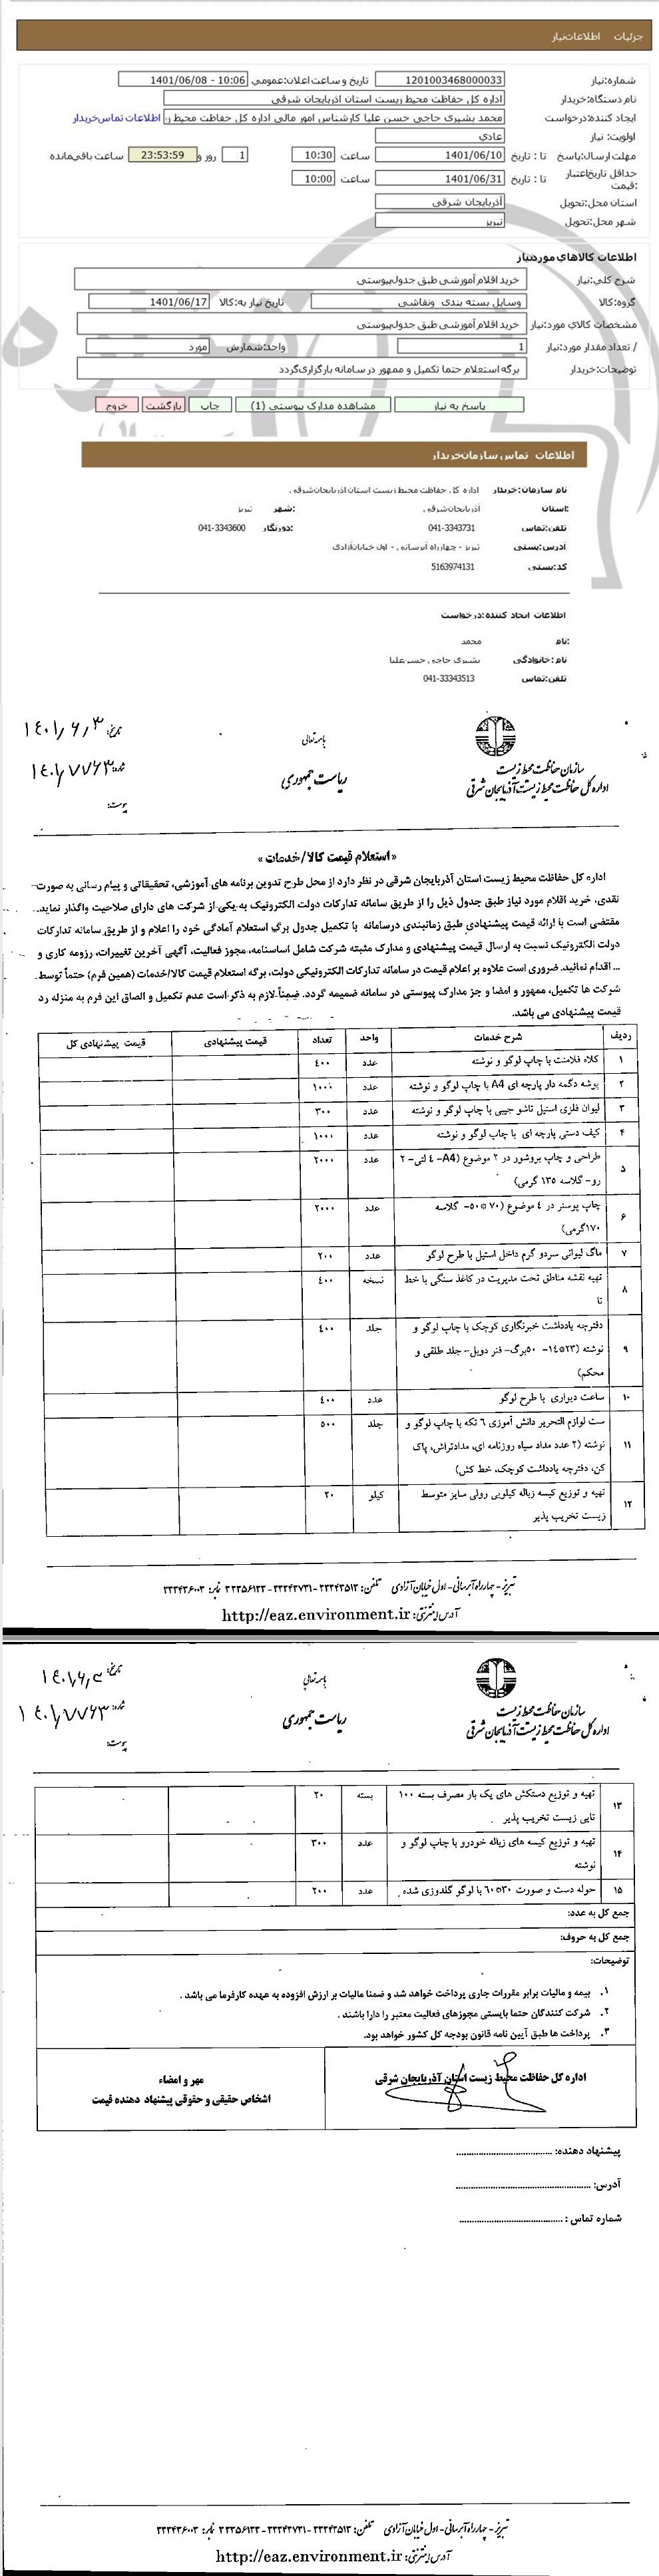 جزئیات اطلاعات نیاز
شماره نیاز: 1201003468000033 تاریخ و ساعت اعلان عمومی: 1401/06/08 - 10:06
نام دستگاه خریدار: اداره کل حفاظت محیط زیست استان اذربایجان شرقی
ایجاد کننده درخواست: محمد بشیری حاجی حسن علیا کارشناس امور مالی اداره کل حفاظت محیط ز اطلاعات تماس خریدار
اولویت نیاز: عادی
مهلت ارسال پاسخ تا : تاریخ 1401/06/10 ساعت 10:30 1 روز و 23:53:59 ساعت باقی مانده
حداقل تاریخ اعتبار قیمت: تا : تاریخ 1401/06/31 ساعت 10:00
استان محل تحویل: آذربایجان شرقی
شهر محل تحویل: تبریز
اطلاعات کالاهای مورد نیاز
شرح کلی نیاز: خرید اقلام آموزشی طبق جدول پیوستی
گروه کالا: وسایل بسته بندی ونقاشی تاریخ نیاز به کالا: 1401/06/17
مشخصات کالای مورد نیاز: خرید اقلام آموزشی طبق جدول پیوستی
/ تعداد مقدار مورد نیاز: 1 واحد شمارش: مورد
توضیحات خریدار: برگه استعلام حتما تکمیل و ممهور در سامانه بارگزاری گردد
پاسخ به نیاز مشاهده مدارک پیوستی (1) چاپ بازگشت خروج
اطلاعات تماس سازمان خریدار
نام سازمان خریدار: اداره کل حفاظت محیط زیست استان اذربایجان شرقی
استان: آذربایجان شرقی شهر: تبریز
تلفن تماس: 041-3343731 دورنگار: 041-3343600
آدرس پستی: تبریز - چهارراه آبرسانی - اول خیابان آزادی
کد پستی: 5163974131
اطلاعات ایجاد کننده درخواست:
نام: محمد
نام خانوادگی: بشیری حاجی حسن علیا
تلفن تماس: 041-33343513
باسمه تعالی
تاریخ: ۱۴۰۱/۶/۳
سازمان حفاظت محیط زیست
ریاست جمهوری
شماره: ۱۴۰۱/۷۷۶۳
اداره کل حفاظت محیط زیست آذربایجان شرقی
پیوست:
« استعلام قیمت کالا/خدمات »
اداره کل حفاظت محیط زیست استان آذربایجان شرقی در نظر دارد از محل طرح تدوین برنامه های آموزشی، تحقیقاتی و پیام رسانی به صورت
نقدی، خرید اقلام مورد نیاز طبق جدول ذیل را از طریق سامانه تدارکات دولت الکترونیک به یکی از شرکت های دارای صلاحیت واگذار نماید.
مقتضی است با ارائه قیمت پیشنهادی طبق زمانبندی درسامانه با تکمیل جدول برگ استعلام آمادگی خود را اعلام و از طریق سامانه تدارکات
دولت الکترونیک نسبت به ارسال قیمت پیشنهادی و مدارک مثبته شرکت شامل اساسنامه، مجوز فعالیت، آگهی آخرین تغییرات، رزومه کاری و
... اقدام نمائید. ضروری است علاوه بر اعلام قیمت در سامانه تدارکات الکترونیکی دولت، برگه استعلام قیمت کالا/خدمات (همین فرم) حتماً توسط
شرکت ها تکمیل، ممهور و امضا و جز مدارک پیوستی در سامانه ضمیمه گردد. ضمناً لازم به ذکر است عدم تکمیل و الصاق این فرم به منزله رد
قیمت پیشنهادی می باشد.
ردیف شرح خدمات واحد تعداد قیمت پیشنهادی قیمت پیشنهادی کل
۱ کلاه فلامنت با چاپ لوگو و نوشته عدد ۴۰۰
۲ پوشه دگمه دار پارچه ای A4 با چاپ لوگو و نوشته عدد ۱۰۰۰
۳ لیوان فلزی استیل تاشو جیبی با چاپ لوگو و نوشته عدد ۳۰۰
۴ کیف دستی پارچه ای با چاپ لوگو و نوشته عدد ۱۰۰۰
۵ طراحی و چاپ بروشور در ۲ موضوع (A4- ٤ لتی- ۲ عدد ۲۰۰۰
رو- گلاسه ۱۳۵ گرمی)
۶ چاپ پوستر در ٤ موضوع (۷۰*۵۰- گلاسه عدد ۲۰۰۰
۱۷۰گرمی)
۷ ماگ لیوانی سردو گرم داخل استیل با طرح لوگو عدد ۲۰۰
۸ تهیه نقشه مناطق تحت مدیریت در کاغذ سنگی با خط نسخه ٤۰۰
تا
۹ دفترچه یادداشت خبرنگاری کوچک با چاپ لوگو و جلد ٤۰۰
نوشته (۲۳*۱٤- ۵۰برگ- فنر دوبل- جلد طلقی و
محکم)
۱۰ ساعت دیواری با طرح لوگو عدد ٤۰۰
۱۱ ست لوازم التحریر دانش آموزی ٦ تکه با چاپ لوگو و جلد ۵۰۰
نوشته (۲ عدد مداد سیاه روزنامه ای، مدادتراش، پاک
کن، دفترچه یادداشت کوچک، خط کش)
۱۲ تهیه و توزیع کیسه زباله کیلویی رولی سایز متوسط کیلو ۲۰
زیست تخریب پذیر
تبریز - چهارراه آبرسانی - اول خیابان آزادی تلفن: ۳۳۳۴۳۵۱۳ - ۳۳۳۴۳۷۳۱ - ۳۳۳۵۶۱۳۳ نمابر: ۳۳۳۴۳۶۰۰۳
آدرس اینترنتی: http://eaz.environment.ir
باسمه تعالی
سازمان حفاظت محیط زیست
ریاست جمهوری
شماره: ۱۴۰۱/۷۷۶۳
اداره کل حفاظت محیط زیست آذربایجان شرقی
پیوست:
۱۳ تهیه و توزیع دستکش های یک بار مصرف بسته ۱۰۰ بسته ۲۰
تایی زیست تخریب پذیر
۱۴ تهیه و توزیع کیسه های زباله خودرو با چاپ لوگو و عدد ۳۰۰
نوشته
۱۵ حوله دست و صورت ۳۰*٦۰ با لوگو گلدوزی شده عدد ۲۰۰
جمع کل به عدد:
جمع کل به حروف:
توضیحات:
۱. بیمه و مالیات برابر مقررات جاری پرداخت خواهد شد و ضمنا مالیات بر ارزش افزوده به عهده کارفرما می باشد .
۲. شرکت کنندگان حتما بایستی مجوزهای فعالیت معتبر را دارا باشند .
۳. پرداخت ها طبق آیین نامه قانون بودجه کل کشور خواهد بود.
اداره کل حفاظت محیط زیست استان آذربایجان شرقی
مهر و امضاء
اشخاص حقیقی و حقوقی پیشنهاد دهنده قیمت
پیشنهاد دهنده: ...................................
آدرس: ...................................
شماره تماس : ...................................
تبریز - چهارراه آبرسانی - اول خیابان آزادی تلفن: ۳۳۳۴۳۵۱۳ - ۳۳۳۴۳۷۳۱ - ۳۳۳۵۶۱۳۳ نمابر: ۳۳۳۴۳۶۰۰۳
آدرس اینترنتی: http://eaz.environment.ir